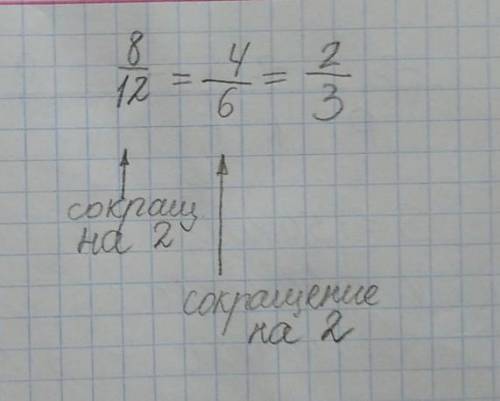 8/12 = 4/6 = 2/3
сокращ
на 2
сокращение
на 2